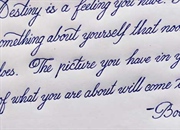 Destiny is a feeling you have
something about yourself that no
does. The picture you have in y
of what you are about will come t
-Bo